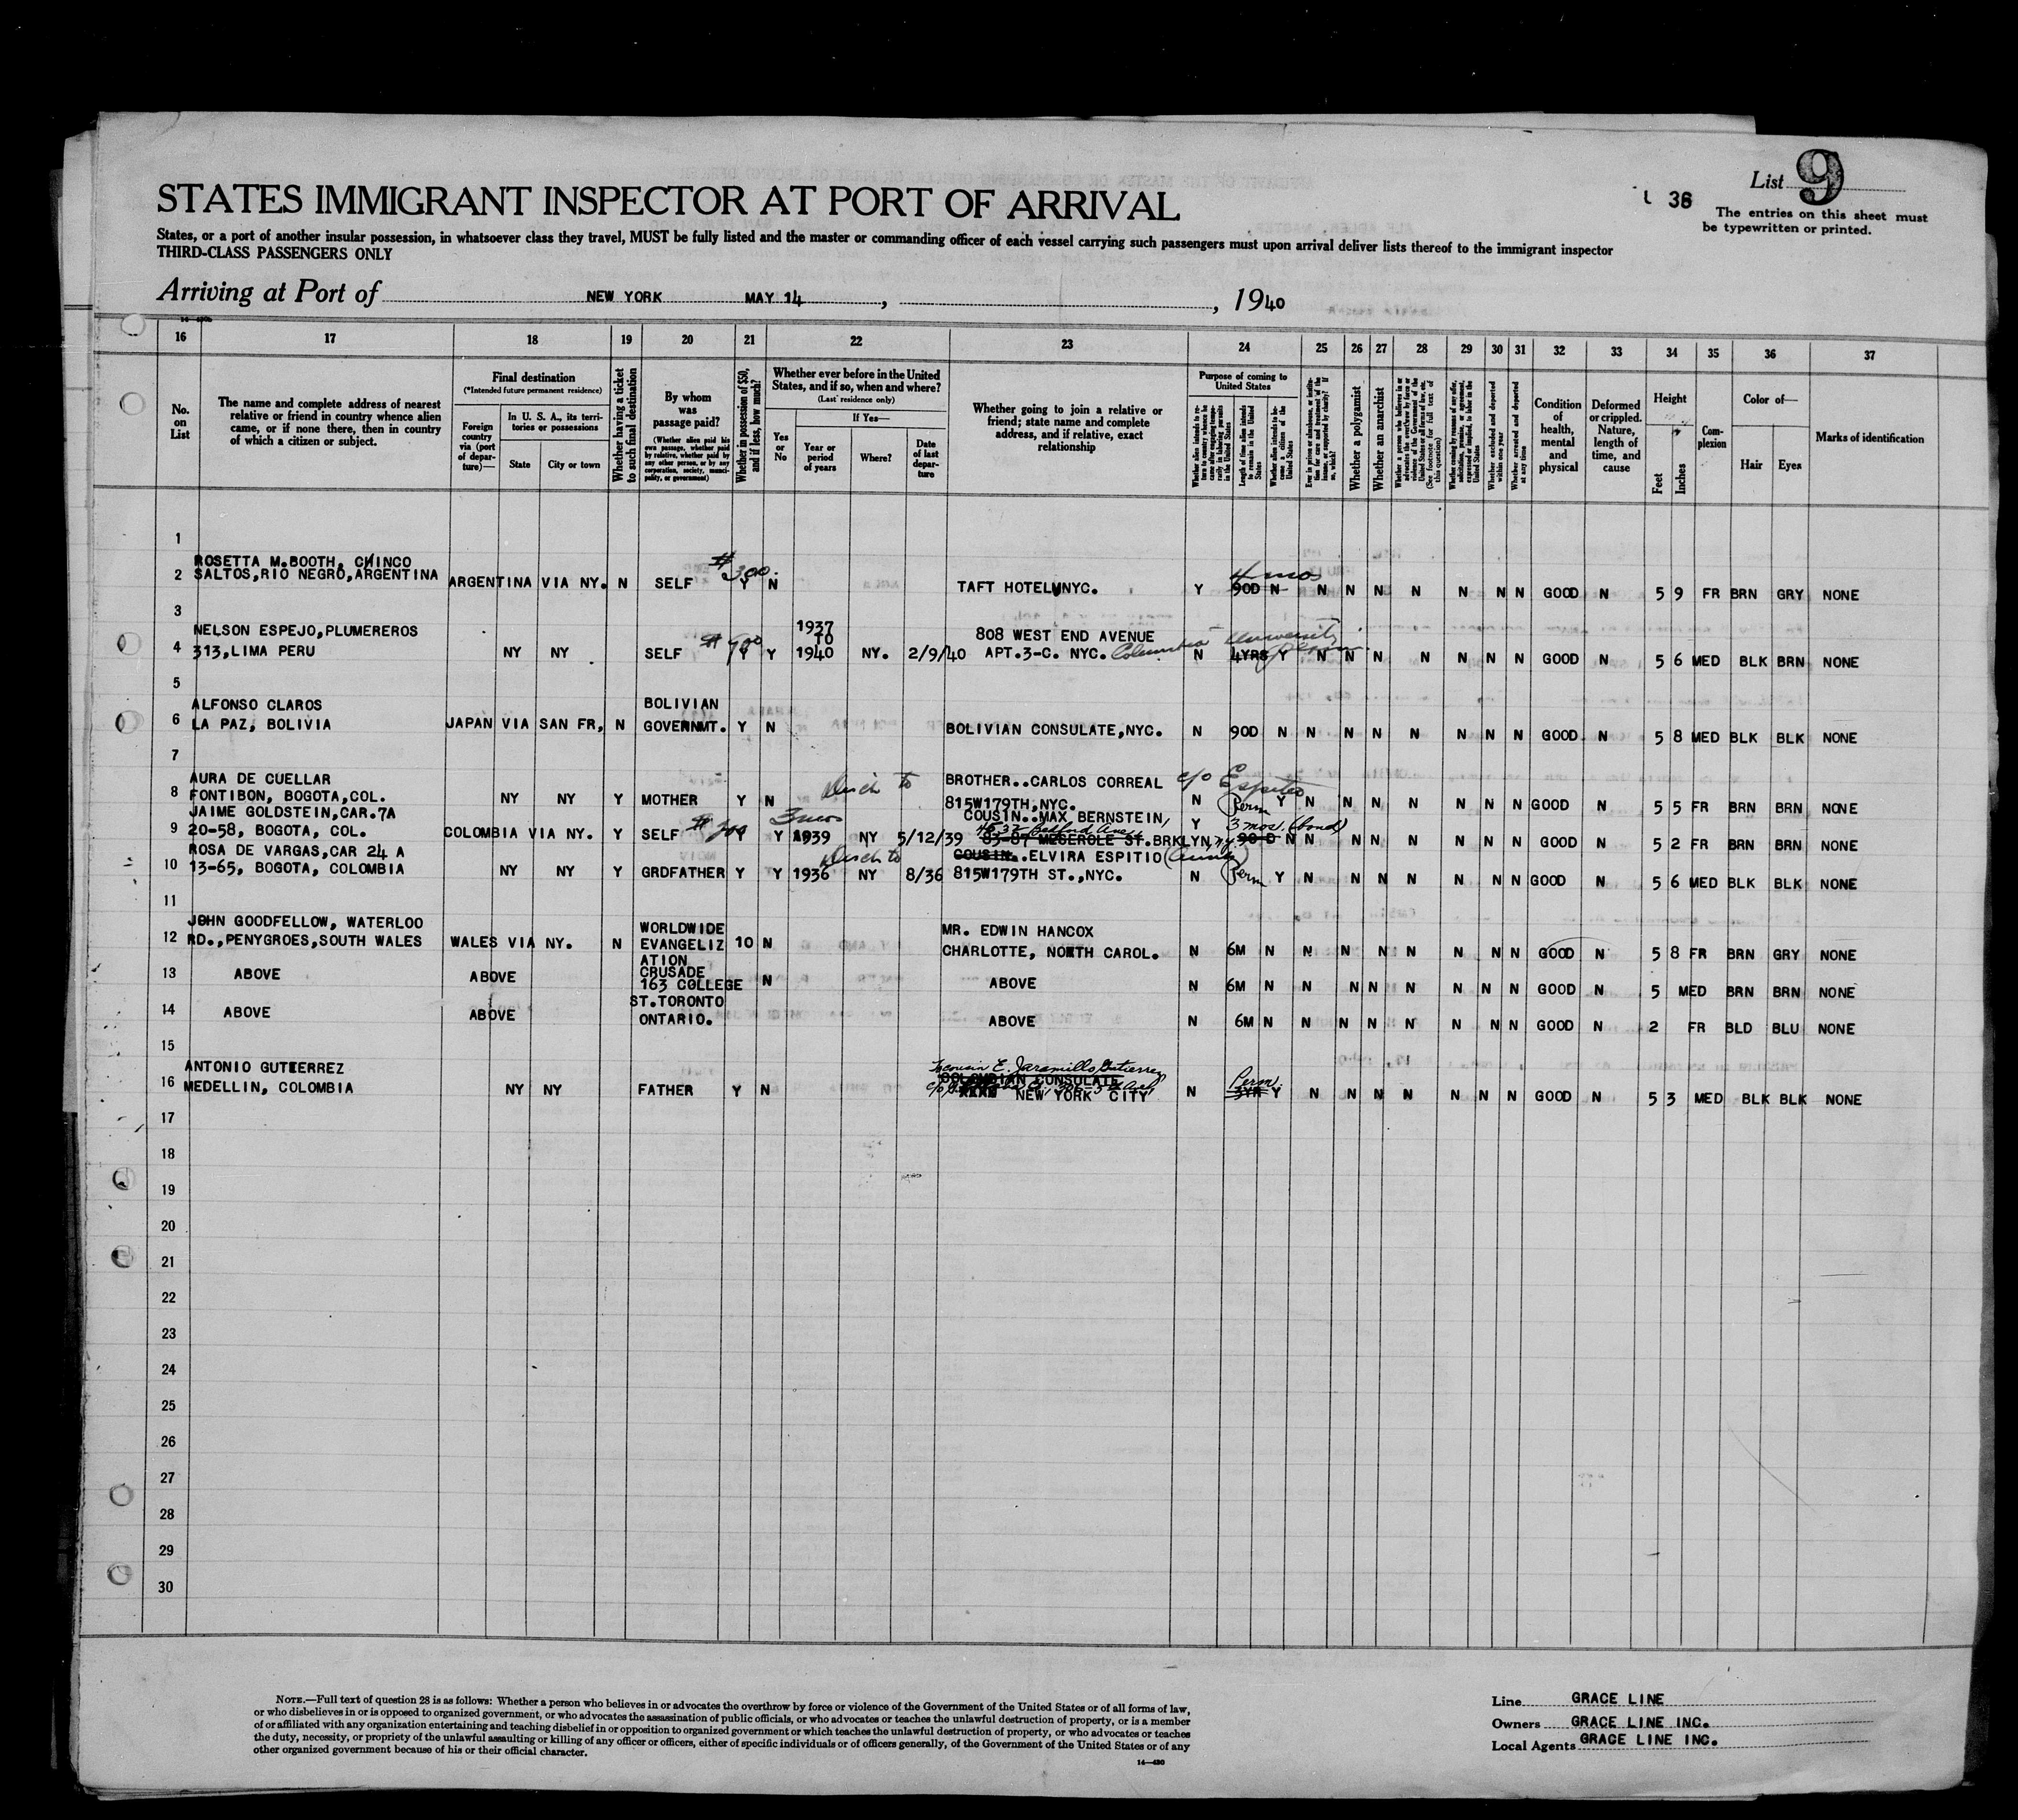 List 9
U 36
The entries on this sheet must
be typewritten or printed.
STATES IMMIGRANT INSPECTOR AT PORT OF ARRIVAL
States, or a port of another insular possession, in whatsoever class they travel, MUST be fully listed and the master or commanding officer of each vessel carrying such passengers must upon arrival deliver lists thereof to the immigrant inspector
THIRD-CLASS PASSENGERS ONLY
Arriving at Port of NEW YORK MAY 14, , 1940
16 17 18 19 20 21 22 23 24 25 26 27 28 29 30 31 32 33 34 35 36 37
No. on List
The name and complete address of nearest relative or friend in country whence alien came, or if none there, then in country of which a citizen or subject.
Final destination
(*Intended future permanent residence)
Foreign country via (port of departure)—
In U. S. A., its territories or possessions
State
City or town
Whether having a ticket to such final destination
By whom was passage paid?
(Whether alien paid his own passage, whether paid by relative, whether paid by any other person, or by any corporation, society, municipality, or government)
Whether in possession of $50, and if less, how much?
Whether ever before in the United States, and if so, when and where?
(Last residence only)
Yes or No
If Yes—
Year or period of years
Where?
Date of last departure
Whether going to join a relative or friend; state name and complete address, and if relative, exact relationship
Purpose of coming to United States
Whether alien intends to return to country whence he came after engaging temporarily in laboring pursuits in the United States
Length of time alien intends to remain in the United States
Whether alien intends to become a citizen of the United States
Ever in prison or almshouse, or institution for care and treatment of the insane, or supported by charity? If so, which?
Whether a polygamist
Whether an anarchist
Whether a person who believes in or advocates the overthrow by force or violence of the Government of the United States or all forms of law, etc. (See footnote for full text of this question)
Whether coming by reason of any offer, solicitation, promise, or agreement, expressed or implied, to labor in the United States
Whether excluded and deported within one year
Whether arrested and deported at any time
Condition of health, mental and physical
Deformed or crippled. Nature, length of time, and cause
Height
Feet
Inches
Complexion
Color of—
Hair
Eyes
Marks of identification
1
ROSETTA M.BOOTH, CHINCO
2 SALTOS,RIO NEGRO,ARGENTINA ARGENTINA VIA NY. N SELF #300. Y N TAFT HOTEL NYC. Y 4 mos 90D N N N N N N N N GOOD N 5 9 FR BRN GRY NONE
3
NELSON ESPEJO,PLUMEREROS 1937 TO 808 WEST END AVENUE
4 313,LIMA PERU NY NY SELF #900 Y Y 1940 NY. 2/9/40 APT.3-C. NYC. Columbia University N 4YRS Y N N N N N N N GOOD N 5 6 MED BLK BRN NONE
5
ALFONSO CLAROS BOLIVIAN
6 LA PAZ, BOLIVIA JAPAN VIA SAN FR, N GOVERNMT. Y N BOLIVIAN CONSULATE,NYC. N 90D N N N N N N N N GOOD N 5 8 MED BLK BLK NONE
7
AURA DE CUELLAR BROTHER..CARLOS CORREAL c/o Espitio
8 FONTIBON, BOGOTA,COL. NY NY Y MOTHER Y N 815W179TH,NYC. N Perm Y N N N N N N N GOOD N 5 5 FR BRN BRN NONE
JAIME GOLDSTEIN,CAR.7A 3 mos COUSIN..MAX BERNSTEIN,
9 20-58, BOGOTA, COL. COLOMBIA VIA NY. Y SELF #200 Y Y 1939 NY 5/12/39 Bedford Ave 83-87 MESEROLE ST.BRKLYN, NY. Y 3 mos. (bond) 90 D N N N N N N N N GOOD N 5 2 FR BRN BRN NONE
ROSA DE VARGAS,CAR 24 A COUSIN..ELVIRA ESPITIO (Aunt)
10 13-65, BOGOTA, COLOMBIA NY NY Y GRDFATHER Y Y 1936 NY 8/36 815W179TH ST.,NYC. N Perm Y N N N N N N N GOOD N 5 6 MED BLK BLK NONE
11
JOHN GOODFELLOW, WATERLOO WORLDWIDE MR. EDWIN HANCOX
12 RD.,PENYGROES,SOUTH WALES WALES VIA NY. N EVANGELIZ 10 N CHARLOTTE, NORTH CAROL. N 6M N N N N N N N N GOOD N 5 8 FR BRN GRY NONE
ATION
CRUSADE
13 ABOVE ABOVE 163 COLLEGE N ABOVE N 6M N N N N N N N N GOOD N 5 MED BRN BRN NONE
ST.TORONTO
14 ABOVE ABOVE ONTARIO. ABOVE N 6M N N N N N N N N GOOD N 2 FR BLD BLU NONE
15
ANTONIO GUTIERREZ cousin E. Jaramillo Gutierrez
COLOMBIAN CONSULATE
16 MEDELLIN, COLOMBIA NY NY FATHER Y N NEW YORK CITY N Perm. 3YR Y N N N N N N N GOOD N 5 3 MED BLK BLK NONE
17
18
19
20
21
22
23
24
25
26
27
28
29
30
NOTE.—Full text of question 28 is as follows: Whether a person who believes in or advocates the overthrow by force or violence of the Government of the United States or of all forms of law,
or who disbelieves in or is opposed to organized government, or who advocates the assassination of public officials, or who advocates or teaches the unlawful destruction of property, or is a member
of or affiliated with any organization entertaining and teaching disbelief in or opposition to organized government or which teaches the unlawful destruction of property, or who advocates or teaches
the duty, necessity, or propriety of the unlawful assaulting or killing of any officer or officers, either of specific individuals or of officers generally, of the Government of the United States or of any
other organized government because of his or their official character.
14—430
Line GRACE LINE
Owners GRACE LINE INC.
Local Agents GRACE LINE INC.